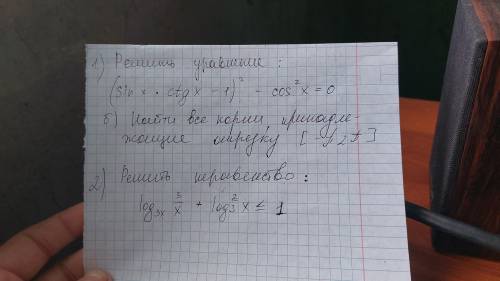 1) Решить уравнение :
(sin x · ctg x - 1)² - cos²x = 0
б) Найти все корни, принадле-
жащие отрезку [-π; 2π]
2) Решить неравенство :
log₃ₓ 3/x + log₃²x ≤ 1